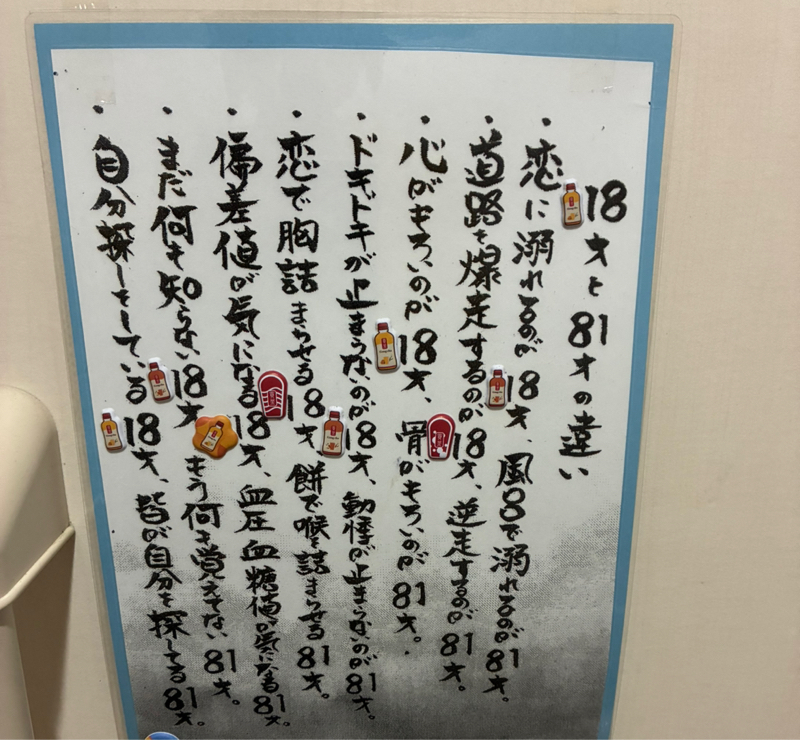 18才と81才の違い
・恋に溺れるのが18才、風呂で溺れるのが81才。
・道路を爆走するのが18才、逆走するのが81才。
・心がもろいのが18才、骨がもろいのが81才。
・ドキドキが止まらないのが18才、動悸が止まらないのが81才。
・恋で胸詰まらせる18才、餅で喉詰まらせる81才。
・偏差値が気になる18才、血圧血糖値が気になる81才。
・まだ何も知らない18才、もう何も覚えてない81才。
・自分探しをしている18才、皆が自分を探してる81才。